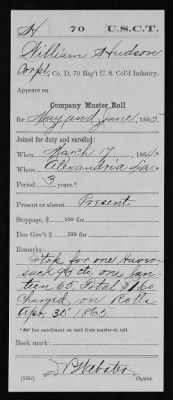 H | 70 | U.S.C.T.
William Hudson
Corpl, Co. D, 70 Reg't U. S. Col'd Infantry.
Appears on
Company Muster Roll
for May and June, 1865.
Joined for duty and enrolled:
When March 17, 1864.
Where Alexandria La.
Period 3 years.*
Present or absent Present
Stoppage, $ 100 for
Due Gov't $ 100 for
Remarks:
Stop for one Haver
sack 96 cts, one Can
teen 65, Total $1.60
Charged on Rolls
Apr. 30" 1865.
Book mark:
Webster
(358c) Copyist.